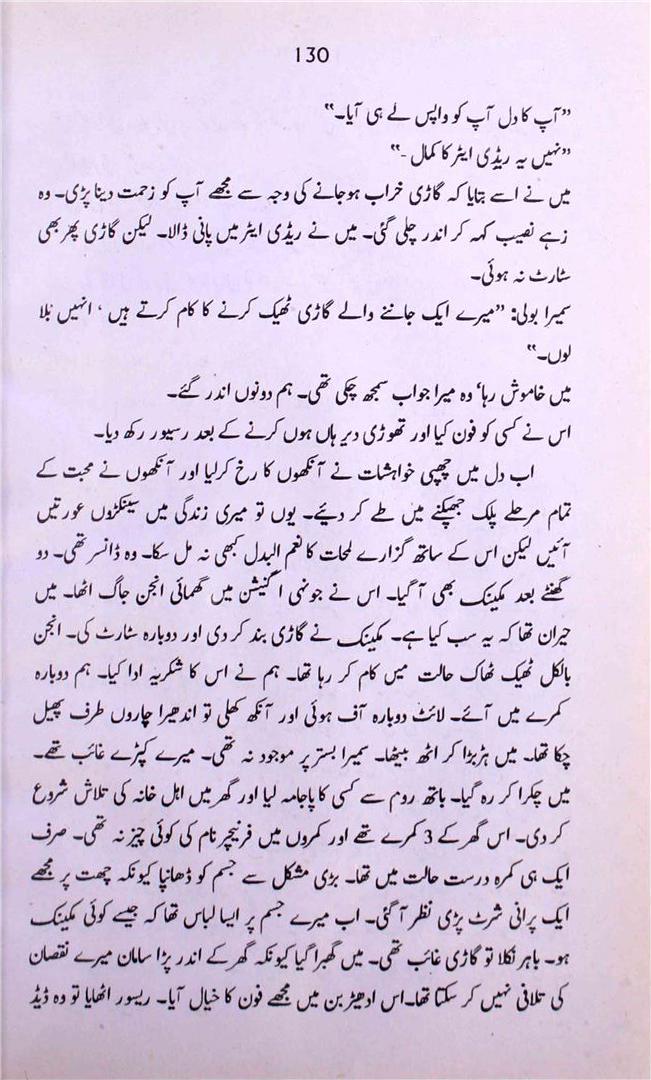 130
”آپ کا دل آپ کو واپس لے ہی آیا۔“
”نہیں یہ ریڈی ایٹر کا کمال -“
میں نے اسے بتایا کہ گاڑی خراب ہوجانے کی وجہ سے مجھے آپ کو زحمت دینا پڑی۔ وہ
زہے نصیب کہہ کر اندر چلی گئی۔ میں نے ریڈی ایٹر میں پانی ڈالا۔ لیکن گاڑی پھر بھی
سٹارٹ نہ ہوئی۔
سمیرا بولی: ”میرے ایک جاننے والے گاڑی ٹھیک کرنے کا کام کرتے ہیں ‘ انہیں بُلا
لوں۔“
میں خاموش رہا‘ وہ میرا جواب سمجھ چکی تھی۔ ہم دونوں اندر گئے۔
اس نے کسی کو فون کیا اور تھوڑی دیر ہاں ہوں کرنے کے بعد رسیور رکھ دیا۔
اب دل میں چھپی خواہشات نے آنکھوں کا رخ کرلیا اور آنکھوں نے محبت کے
تمام مرحلے پلک جھپکنے میں طے کر دیئے۔ یوں تو میری زندگی میں سینکڑوں عورتیں
آئیں لیکن اس کے ساتھ گزارے لمحات کا نعم البدل کبھی نہ مل سکا۔ وہ ڈانسر تھی۔ دو
گھنٹے بعد مکینک بھی آگیا۔ اس نے جونہی اگنیشن میں گھمائی انجن جاگ اٹھا۔ میں
حیران تھا کہ یہ سب کیا ہے۔ مکینک نے گاڑی بند کر دی اور دوبارہ سٹارٹ کی۔ انجن
بالکل ٹھیک ٹھاک حالت میں کام کر رہا تھا۔ ہم نے اس کا شکریہ ادا کیا۔ ہم دوبارہ
کمرے میں آئے۔ لائٹ دوبارہ آف ہوئی اور آنکھ کھلی تو اندھیرا چاروں طرف پھیل
چکا تھا۔ میں ہڑبڑا کر اٹھ بیٹھا۔ سمیرا بستر پر موجود نہ تھی۔ میرے کپڑے غائب تھے۔
میں چکرا کر رہ گیا۔ باتھ روم سے کسی کا پاجامہ لیا اور گھر میں اہل خانہ کی تلاش شروع
کر دی۔ اس گھر کے 3 کمرے تھے اور کمروں میں فرنیچر نام کی کوئی چیز نہ تھی۔ صرف
ایک ہی کمرہ درست حالت میں تھا۔ بڑی مشکل سے جسم کو ڈھانپا کیونکہ چھت پر مجھے
ایک پرانی شرٹ پڑی نظر آگئی۔ اب میرے جسم پر ایسا لباس تھا کہ جیسے کوئی مکینک
ہو۔ باہر نکلا تو گاڑی غائب تھی۔ میں گھبرا گیا کیونکہ گھر کے اندر پڑا سامان میرے نقصان
کی تلافی نہیں کر سکتا تھا۔اس ادھیڑبن میں مجھے فون کا خیال آیا۔ ریسور اٹھایا تو وہ ڈیڈ